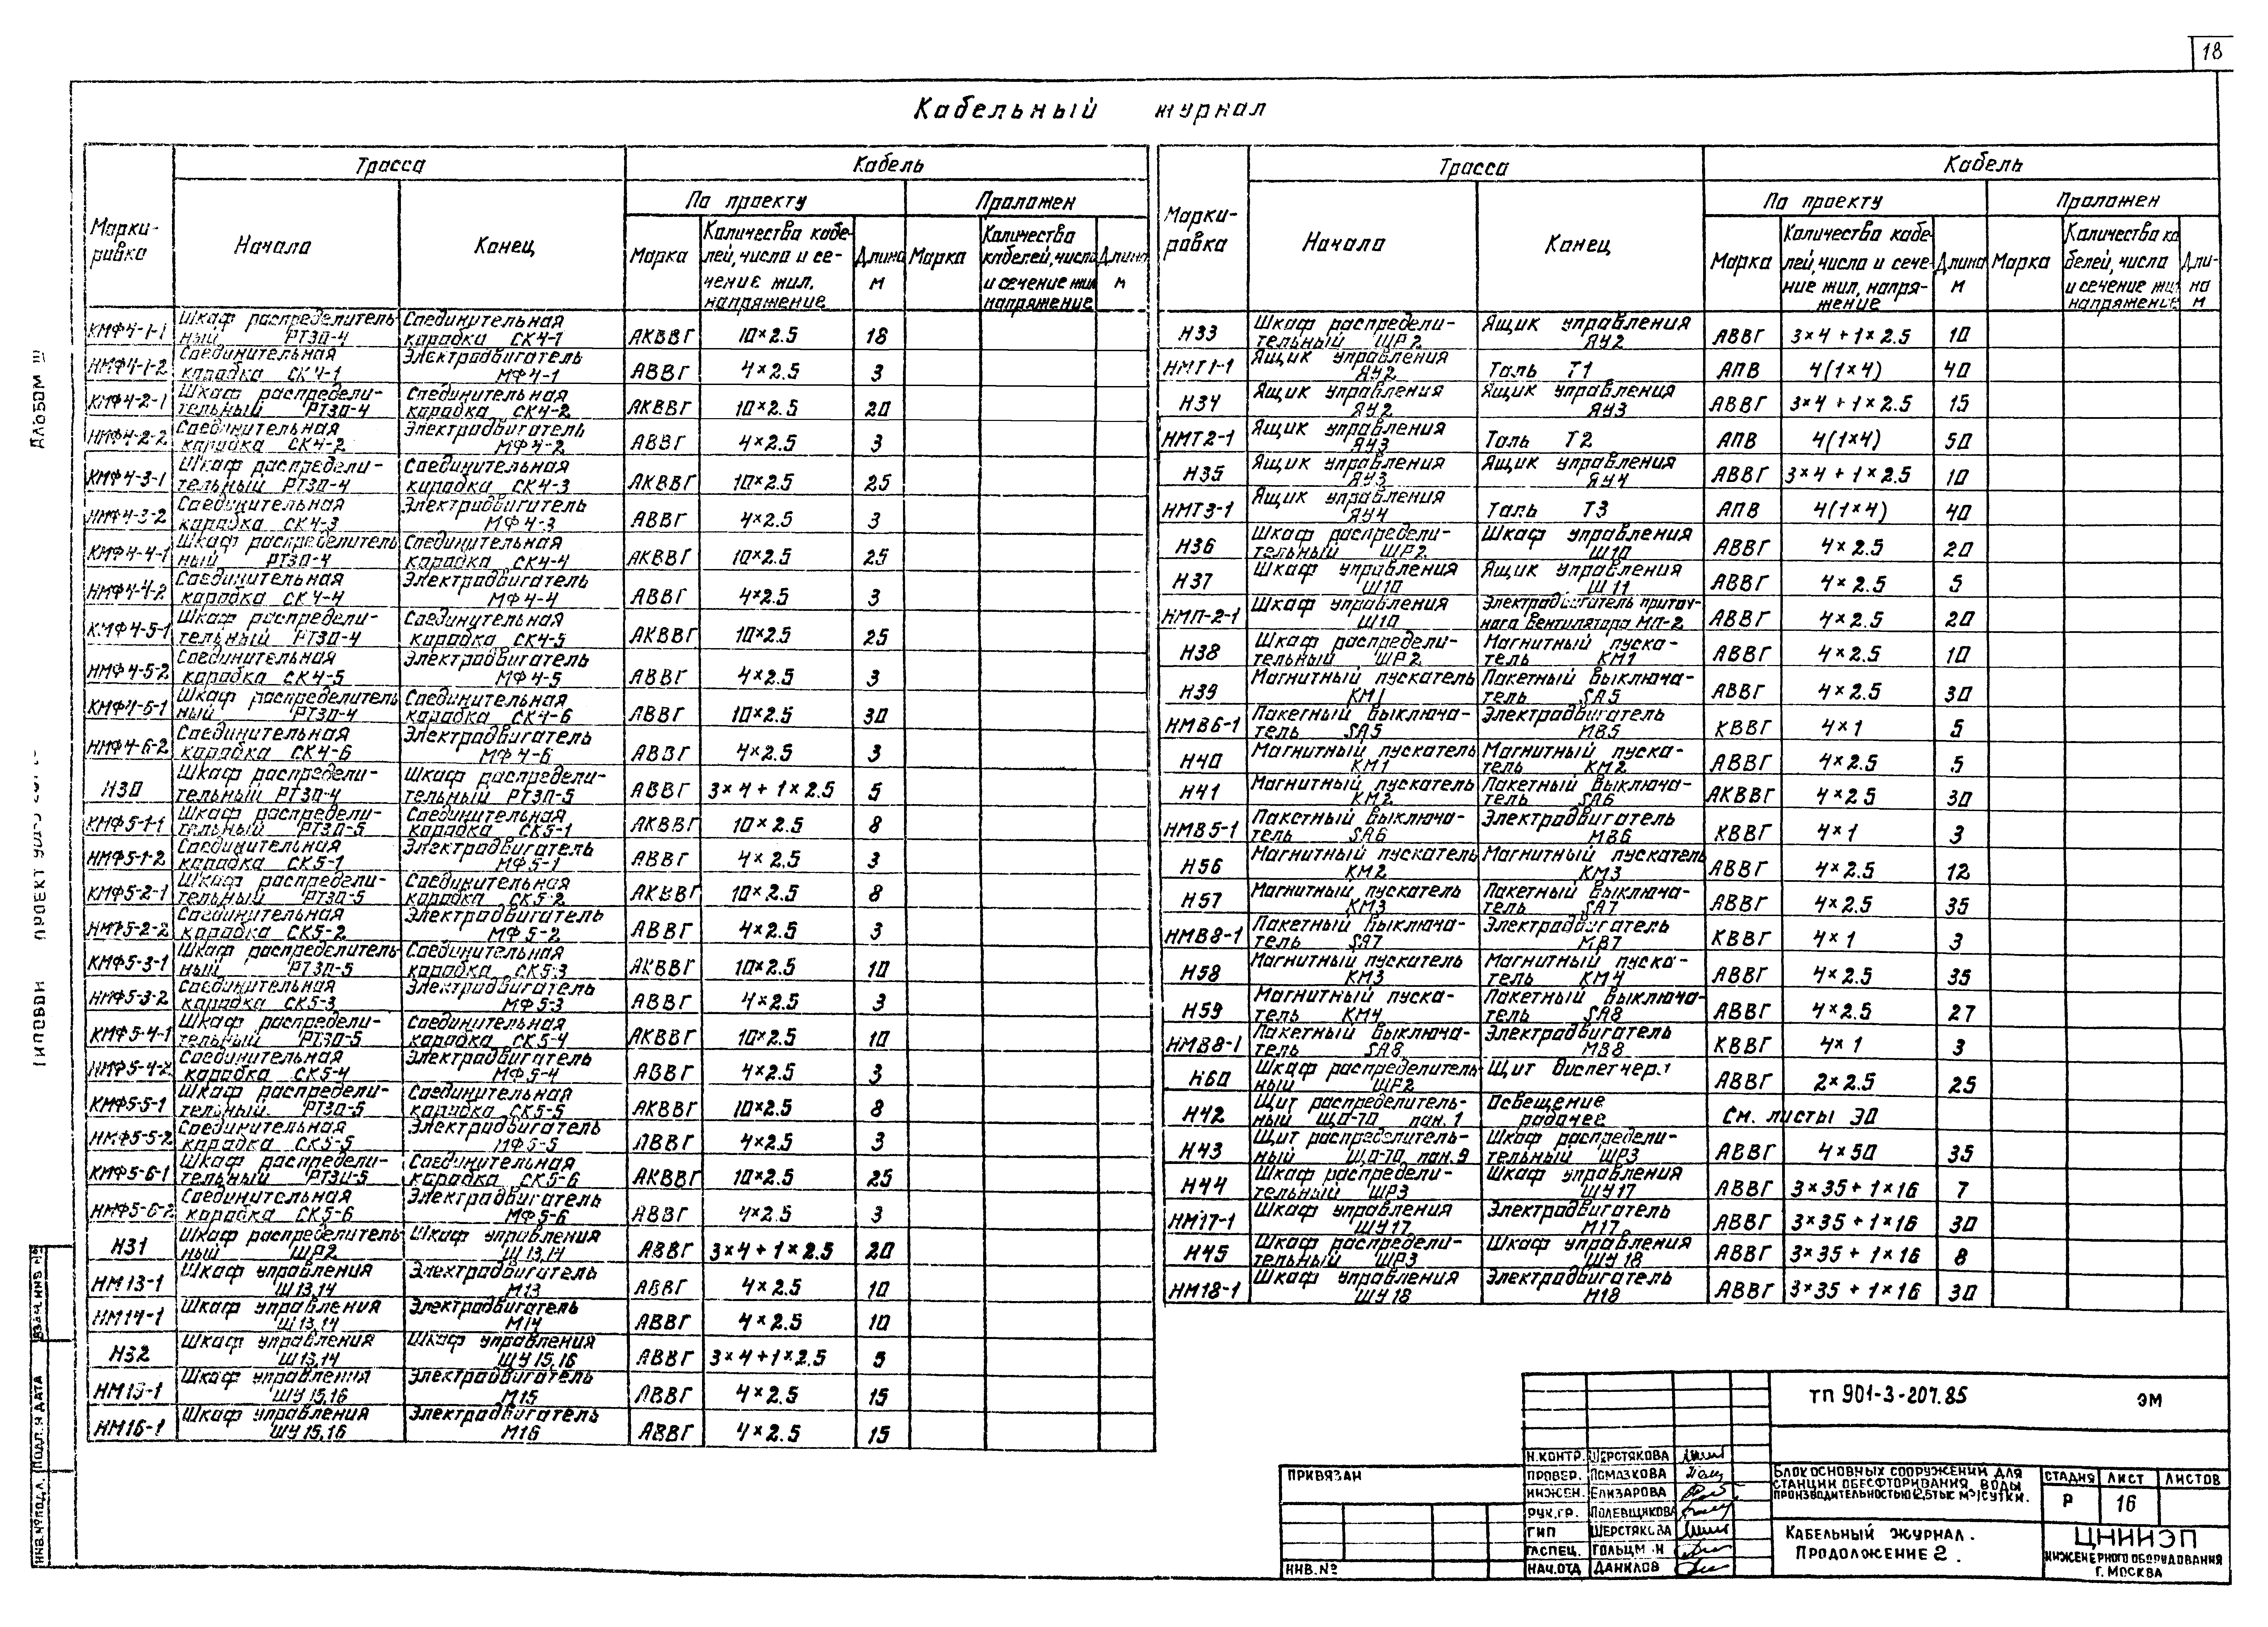 18
Кабельный журнал
Маркировка | Трасса | Кабель
Начало | Конец | По проекту | Проложен
Марка | Количество кабелей, число и сечение жил, напряжение | Длина м | Марка | Количество кабелей, число и сечение жил напряжение | Длина м
КМФ4-1-1 Шкаф распределительный РТЗО-4 Соединительная коробка СК4-1 АКВВГ 10×2.5 18
НМФ4-1-2 Соединительная коробка СК4-1 Электродвигатель МФ4-1 АВВГ 4×2.5 3
КМФ4-2-1 Шкаф распределительный РТЗО-4 Соединительная коробка СК4-2 АКВВГ 10×2.5 20
НМФ4-2-2 Соединительная коробка СК4-2 Электродвигатель МФ4-2 АВВГ 4×2.5 3
КМФ4-3-1 Шкаф распределительный РТЗО-4 Соединительная коробка СК4-3 АКВВГ 10×2.5 25
НМФ4-3-2 Соединительная коробка СК4-3 Электродвигатель МФ4-3 АВВГ 4×2.5 3
КМФ4-4-1 Шкаф распределительный РТЗО-4 Соединительная коробка СК4-4 АКВВГ 10×2.5 25
НМФ4-4-2 Соединительная коробка СК4-4 Электродвигатель МФ4-4 АВВГ 4×2.5 3
КМФ4-5-1 Шкаф распределительный РТЗО-4 Соединительная коробка СК4-5 АКВВГ 10×2.5 25
НМФ4-5-2 Соединительная коробка СК4-5 Электродвигатель МФ4-5 АВВГ 4×2.5 3
КМФ4-6-1 Шкаф распределительный РТЗО-4 Соединительная коробка СК4-6 АВВГ 10×2.5 30
НМФ4-6-2 Соединительная коробка СК4-6 Электродвигатель МФ4-6 АВВГ 4×2.5 3
Н30 Шкаф распределительный РТЗО-4 Шкаф распределительный РТЗО-5 АВВГ 3×4+1×2.5 5
КМФ5-1-1 Шкаф распределительный РТЗО-5 Соединительная коробка СК5-1 АКВВГ 10×2.5 8
НМФ5-1-2 Соединительная коробка СК5-1 Электродвигатель МФ5-1 АВВГ 4×2.5 3
КМФ5-2-1 Шкаф распределительный РТЗО-5 Соединительная коробка СК5-2 АКВВГ 10×2.5 8
НМФ5-2-2 Соединительная коробка СК5-2 Электродвигатель МФ5-2 АВВГ 4×2.5 3
КМФ5-3-1 Шкаф распределительный РТЗО-5 Соединительная коробка СК5-3 АКВВГ 10×2.5 10
НМФ5-3-2 Соединительная коробка СК5-3 Электродвигатель МФ5-3 АВВГ 4×2.5 3
КМФ5-4-1 Шкаф распределительный РТЗО-5 Соединительная коробка СК5-4 АКВВГ 10×2.5 10
НМФ5-4-2 Соединительная коробка СК5-4 Электродвигатель МФ5-4 АВВГ 4×2.5 3
КМФ5-5-1 Шкаф распределительный РТЗО-5 Соединительная коробка СК5-5 АКВВГ 10×2.5 8
НМФ5-5-2 Соединительная коробка СК5-5 Электродвигатель МФ5-5 АВВГ 4×2.5 3
КМФ5-6-1 Шкаф распределительный РТЗО-5 Соединительная коробка СК5-6 АКВВГ 10×2.5 25
НМФ5-6-2 Соединительная коробка СК5-6 Электродвигатель МФ5-6 АВВГ 4×2.5 3
Н31 Шкаф распределительный ШР2 Шкаф управления Ш13,14 АВВГ 3×4+1×2.5 20
НМ13-1 Шкаф управления Ш13,14 Электродвигатель М13 АВВГ 4×2.5 10
НМ14-1 Шкаф управления Ш13,14 Электродвигатель М14 АВВГ 4×2.5 10
Н32 Шкаф управления Ш13,14 Шкаф управления ШУ15,16 АВВГ 3×4+1×2.5 5
НМ15-1 Шкаф управления ШУ15,16 Электродвигатель М15 АВВГ 4×2.5 15
НМ16-1 Шкаф управления ШУ15,16 Электродвигатель М16 АВВГ 4×2.5 15
Маркировка | Трасса | Кабель
Начало | Конец | По проекту | Проложен
Марка | Количество кабелей, число и сечение жил, напряжение | Длина м | Марка | Количество кабелей, число и сечение жил напряжение | Длина м
Н33 Шкаф распределительный ШР2 Ящик управления ЯУ2 АВВГ 3×4+1×2.5 10
НМТ1-1 Ящик управления ЯУ2 Таль Т1 АПВ 4(1×4) 40
Н34 Ящик управления ЯУ2 Ящик управления ЯУ3 АВВГ 3×4+1×2.5 15
НМТ2-1 Ящик управления ЯУ3 Таль Т2 АПВ 4(1×4) 50
Н35 Ящик управления ЯУ3 Ящик управления ЯУ4 АВВГ 3×4+1×2.5 10
НМТ3-1 Ящик управления ЯУ4 Таль Т3 АПВ 4(1×4) 40
Н36 Шкаф распределительный ШР2 Шкаф управления Ш10 АВВГ 4×2.5 20
Н37 Шкаф управления Ш10 Ящик управления Ш11 АВВГ 4×2.5 5
НМП-2-1 Шкаф управления Ш10 Электродвигатель приточного вентилятора МП-2 АВВГ 4×2.5 20
Н38 Шкаф распределительный ШР2 Магнитный пускатель КМ1 АВВГ 4×2.5 10
Н39 Магнитный пускатель КМ1 Пакетный выключатель SA5 АВВГ 4×2.5 30
НМВ6-1 Пакетный выключатель SA5 Электродвигатель МВ5 КВВГ 4×1 5
Н40 Магнитный пускатель КМ1 Магнитный пускатель КМ2 АВВГ 4×2.5 5
Н41 Магнитный пускатель КМ2 Пакетный выключатель SA6 АКВВГ 4×2.5 30
НМВ5-1 Пакетный выключатель SA6 Электродвигатель МВ6 КВВГ 4×1 3
Н56 Магнитный пускатель КМ2 Магнитный пускатель КМ3 АВВГ 4×2.5 12
Н57 Магнитный пускатель КМ3 Пакетный выключатель SA7 АВВГ 4×2.5 35
НМВ8-1 Пакетный выключатель SA7 Электродвигатель МВ7 КВВГ 4×1 3
Н58 Магнитный пускатель КМ3 Магнитный пускатель КМ4 АВВГ 4×2.5 35
Н59 Магнитный пускатель КМ4 Пакетный выключатель SA8 АВВГ 4×2.5 27
НМВ8-1 Пакетный выключатель SA8 Электродвигатель МВ8 КВВГ 4×1 3
Н60 Шкаф распределительный ШР2 Щит диспетчера АВВГ 2×2.5 25
Н42 Щит распределительный ЩО-70 пан.1 Освещение рабочее См. листы ЭО
Н43 Щит распределительный ЩО-70 пан.9 Шкаф распределительный ШР3 АВВГ 4×50 35
Н44 Шкаф распределительный ШР3 Шкаф управления ШУ17 АВВГ 3×35+1×16 7
НМ17-1 Шкаф управления ШУ17 Электродвигатель М17 АВВГ 3×35+1×16 30
Н45 Шкаф распределительный ШР3 Шкаф управления ШУ18 АВВГ 3×35+1×16 8
НМ18-1 Шкаф управления ШУ18 Электродвигатель М18 АВВГ 3×35+1×16 30
АЛЬБОМ III
ТИПОВОЙ ПРОЕКТ
ВЗАМ. ИНВ. №
ПОДП. И ДАТА
ИНВ. № ПОДЛ.
ПРИВЯЗАН
ИНВ. №
Н.КОНТР. ШЕРСТЯКОВА
ПРОВЕР. ПОМАЗКОВА
ИНЖЕН. ЕЛИЗАРОВА
РУК.ГР. ПОЛЕВЩИКОВА
ГИП ШЕРСТЯКОВА
ГЛ.СПЕЦ. ГОЛЬЦМАН
НАЧ.ОТД ДАНИЛОВ
ТП 901-3-207.85 ЭМ
БЛОК ОСНОВНЫХ СООРУЖЕНИЙ ДЛЯ
СТАНЦИИ ОБЕСФТОРИВАНИЯ ВОДЫ
ПРОИЗВОДИТЕЛЬНОСТЬЮ 12,5 ТЫС М³/СУТКИ.
СТАДИЯ ЛИСТ ЛИСТОВ
Р 16
КАБЕЛЬНЫЙ ЖУРНАЛ.
ПРОДОЛЖЕНИЕ 2.
ЦНИИЭП
ИНЖЕНЕРНОГО ОБОРУДОВАНИЯ
Г. МОСКВА